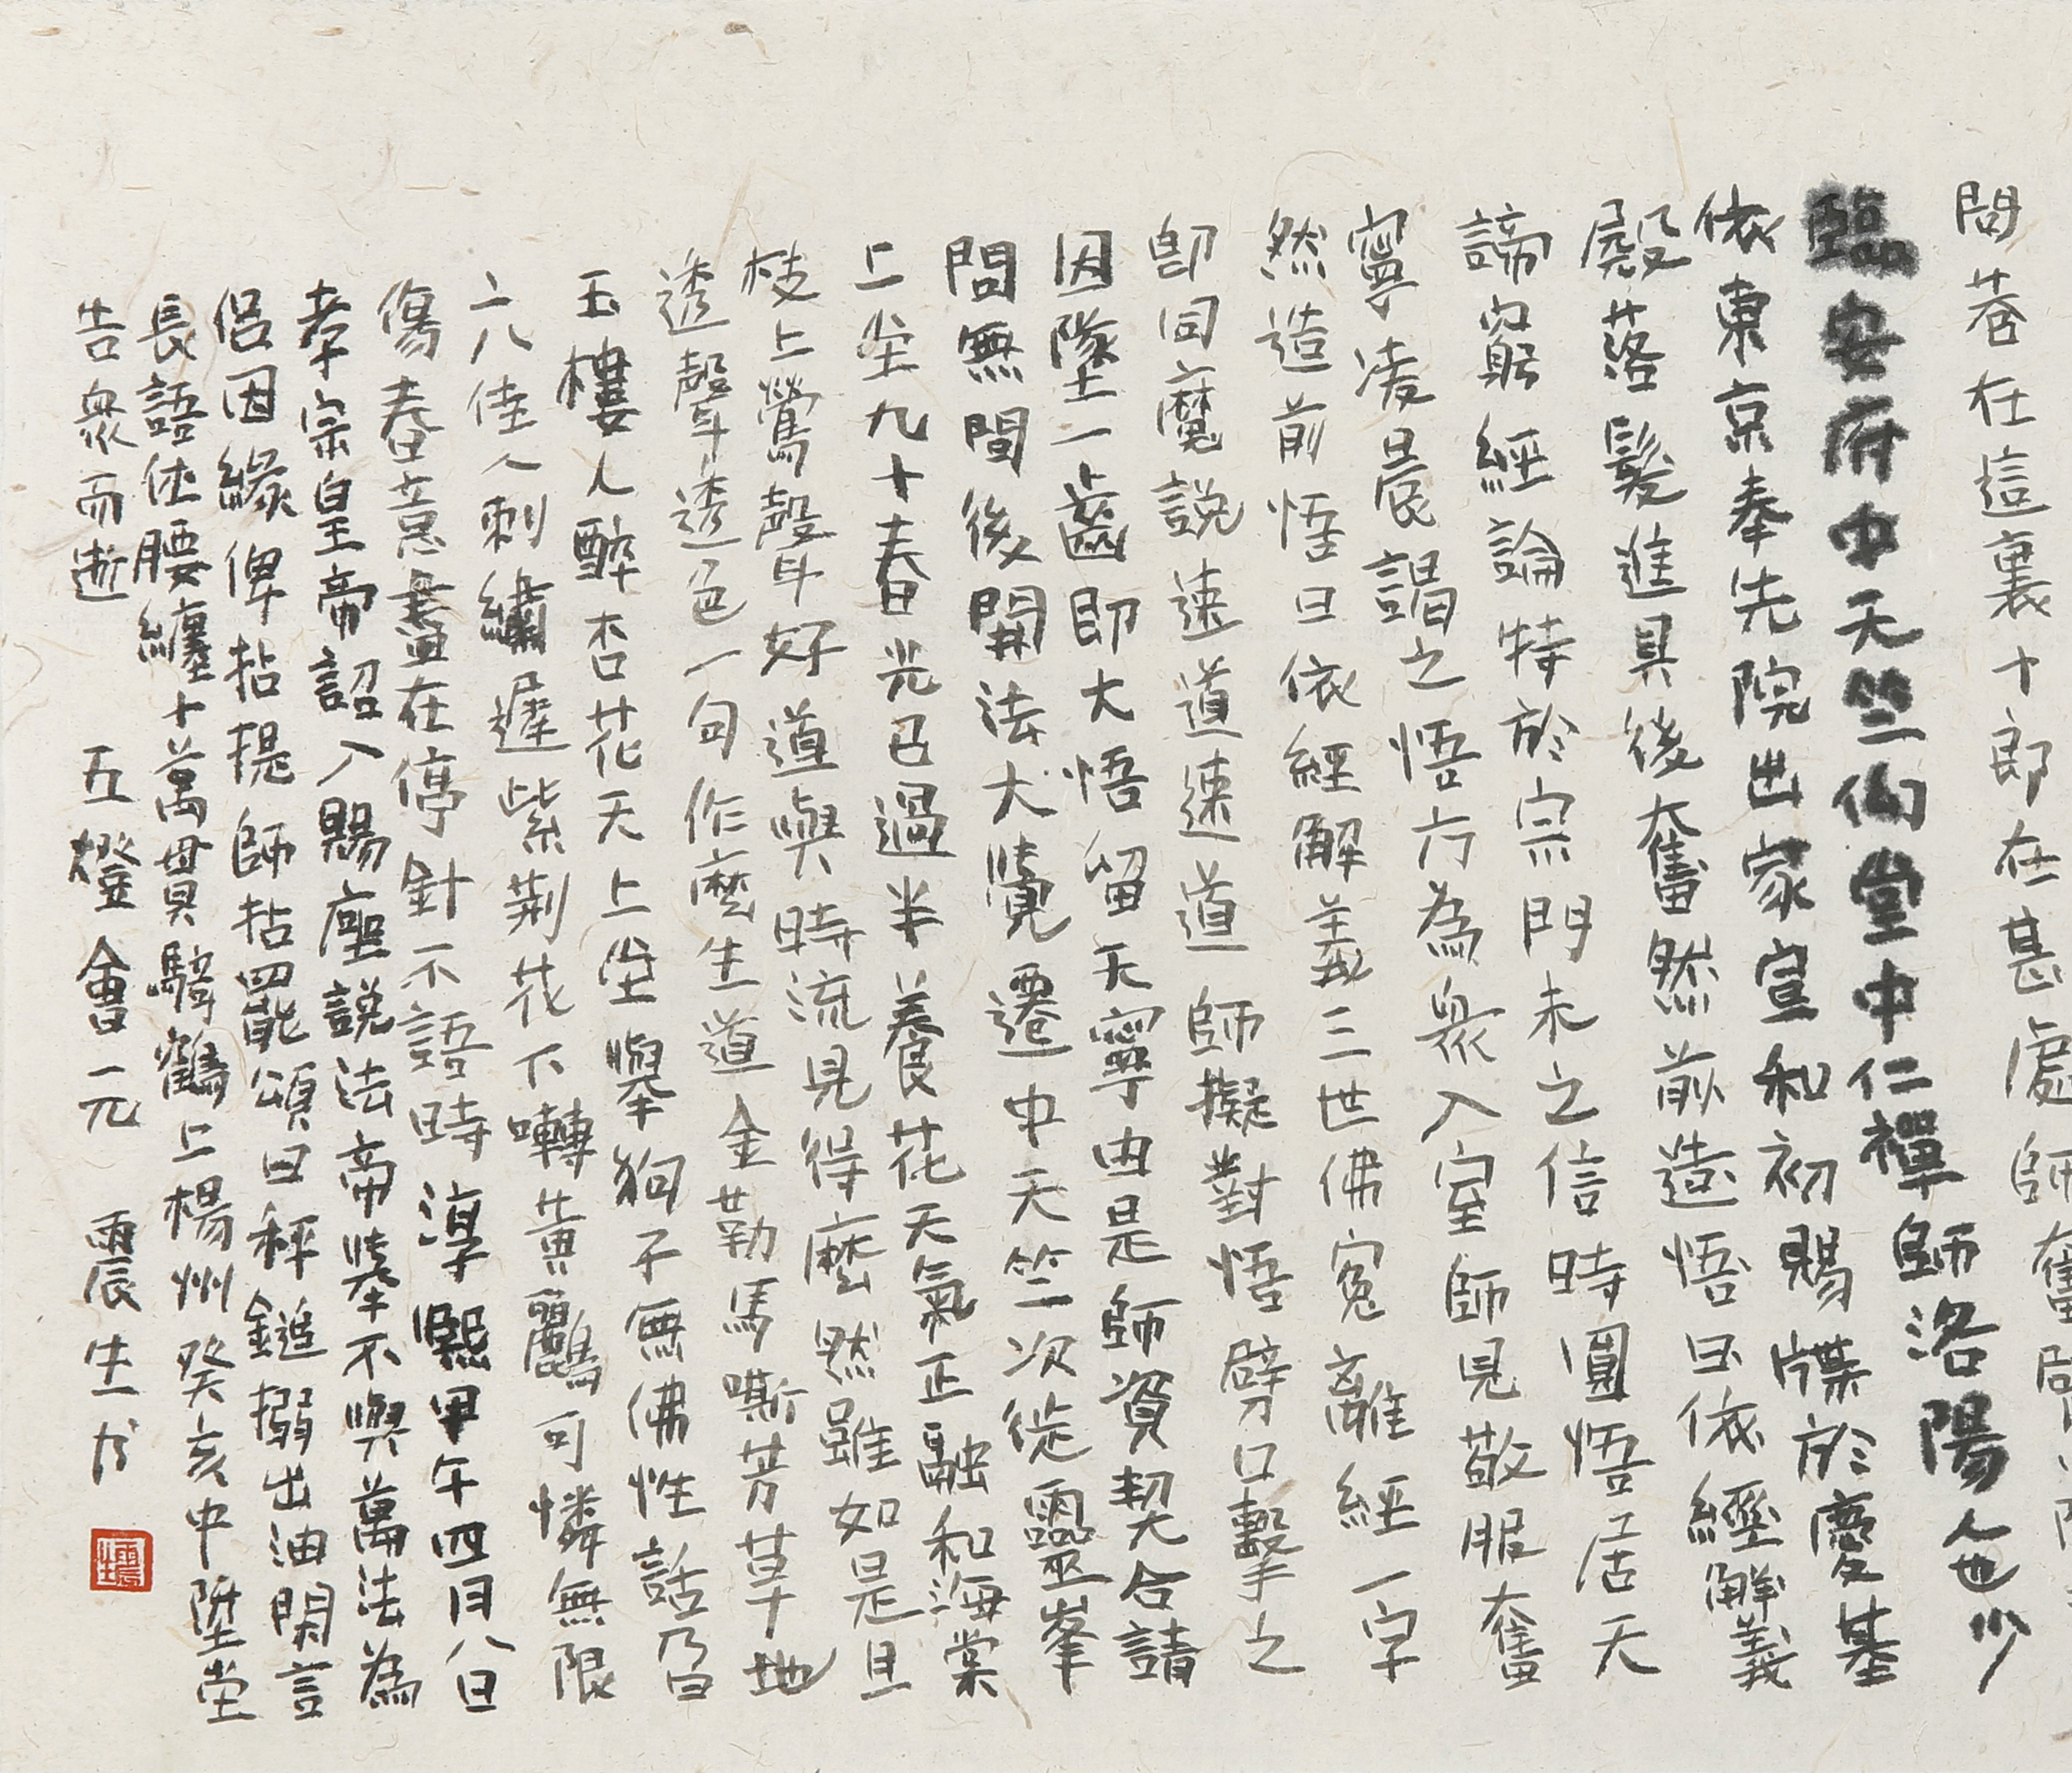 問菴在這裏十郎在甚處師奮
臨安府中天竺堂中仁禪師洛陽人也少
依東京奉先院出家宣和初賜牒於慶基
殿落髮進具後奮然前造悟曰依經解義
諦窮經論特於宗門未之信時圓悟居天
寧凌晨謁之悟方為眾入室師見敬服奮
然造前悟曰依經解義三世佛冤離經一字
即同魔說速道速道師擬對悟劈口擊之
因墜一齒即大悟留天寧由是師資契合請
問無間後開法大覺遷中天竺次徙靈峯
上堂九十春光已過半養花天氣正融和海棠
枝上鶯聲好道與時流見得麼然雖如是且
透聲透色一句作麼生道金勒馬嘶芳草地
玉樓人醉杏花天上堂舉狗子無佛性話乃曰
二八佳人刺繡遲紫荊花下囀黃鸝可憐無限
傷春意盡在停針不語時淳熙甲午四月八日
孝宗皇帝詔入賜座說法帝舉不與萬法為
侶因緣俾拈提師拈罷頌曰秤鎚搦出油閑言
長語休腰纏十萬貫騎鶴上楊州癸亥中陞堂
告眾而逝 五燈會元 震生书